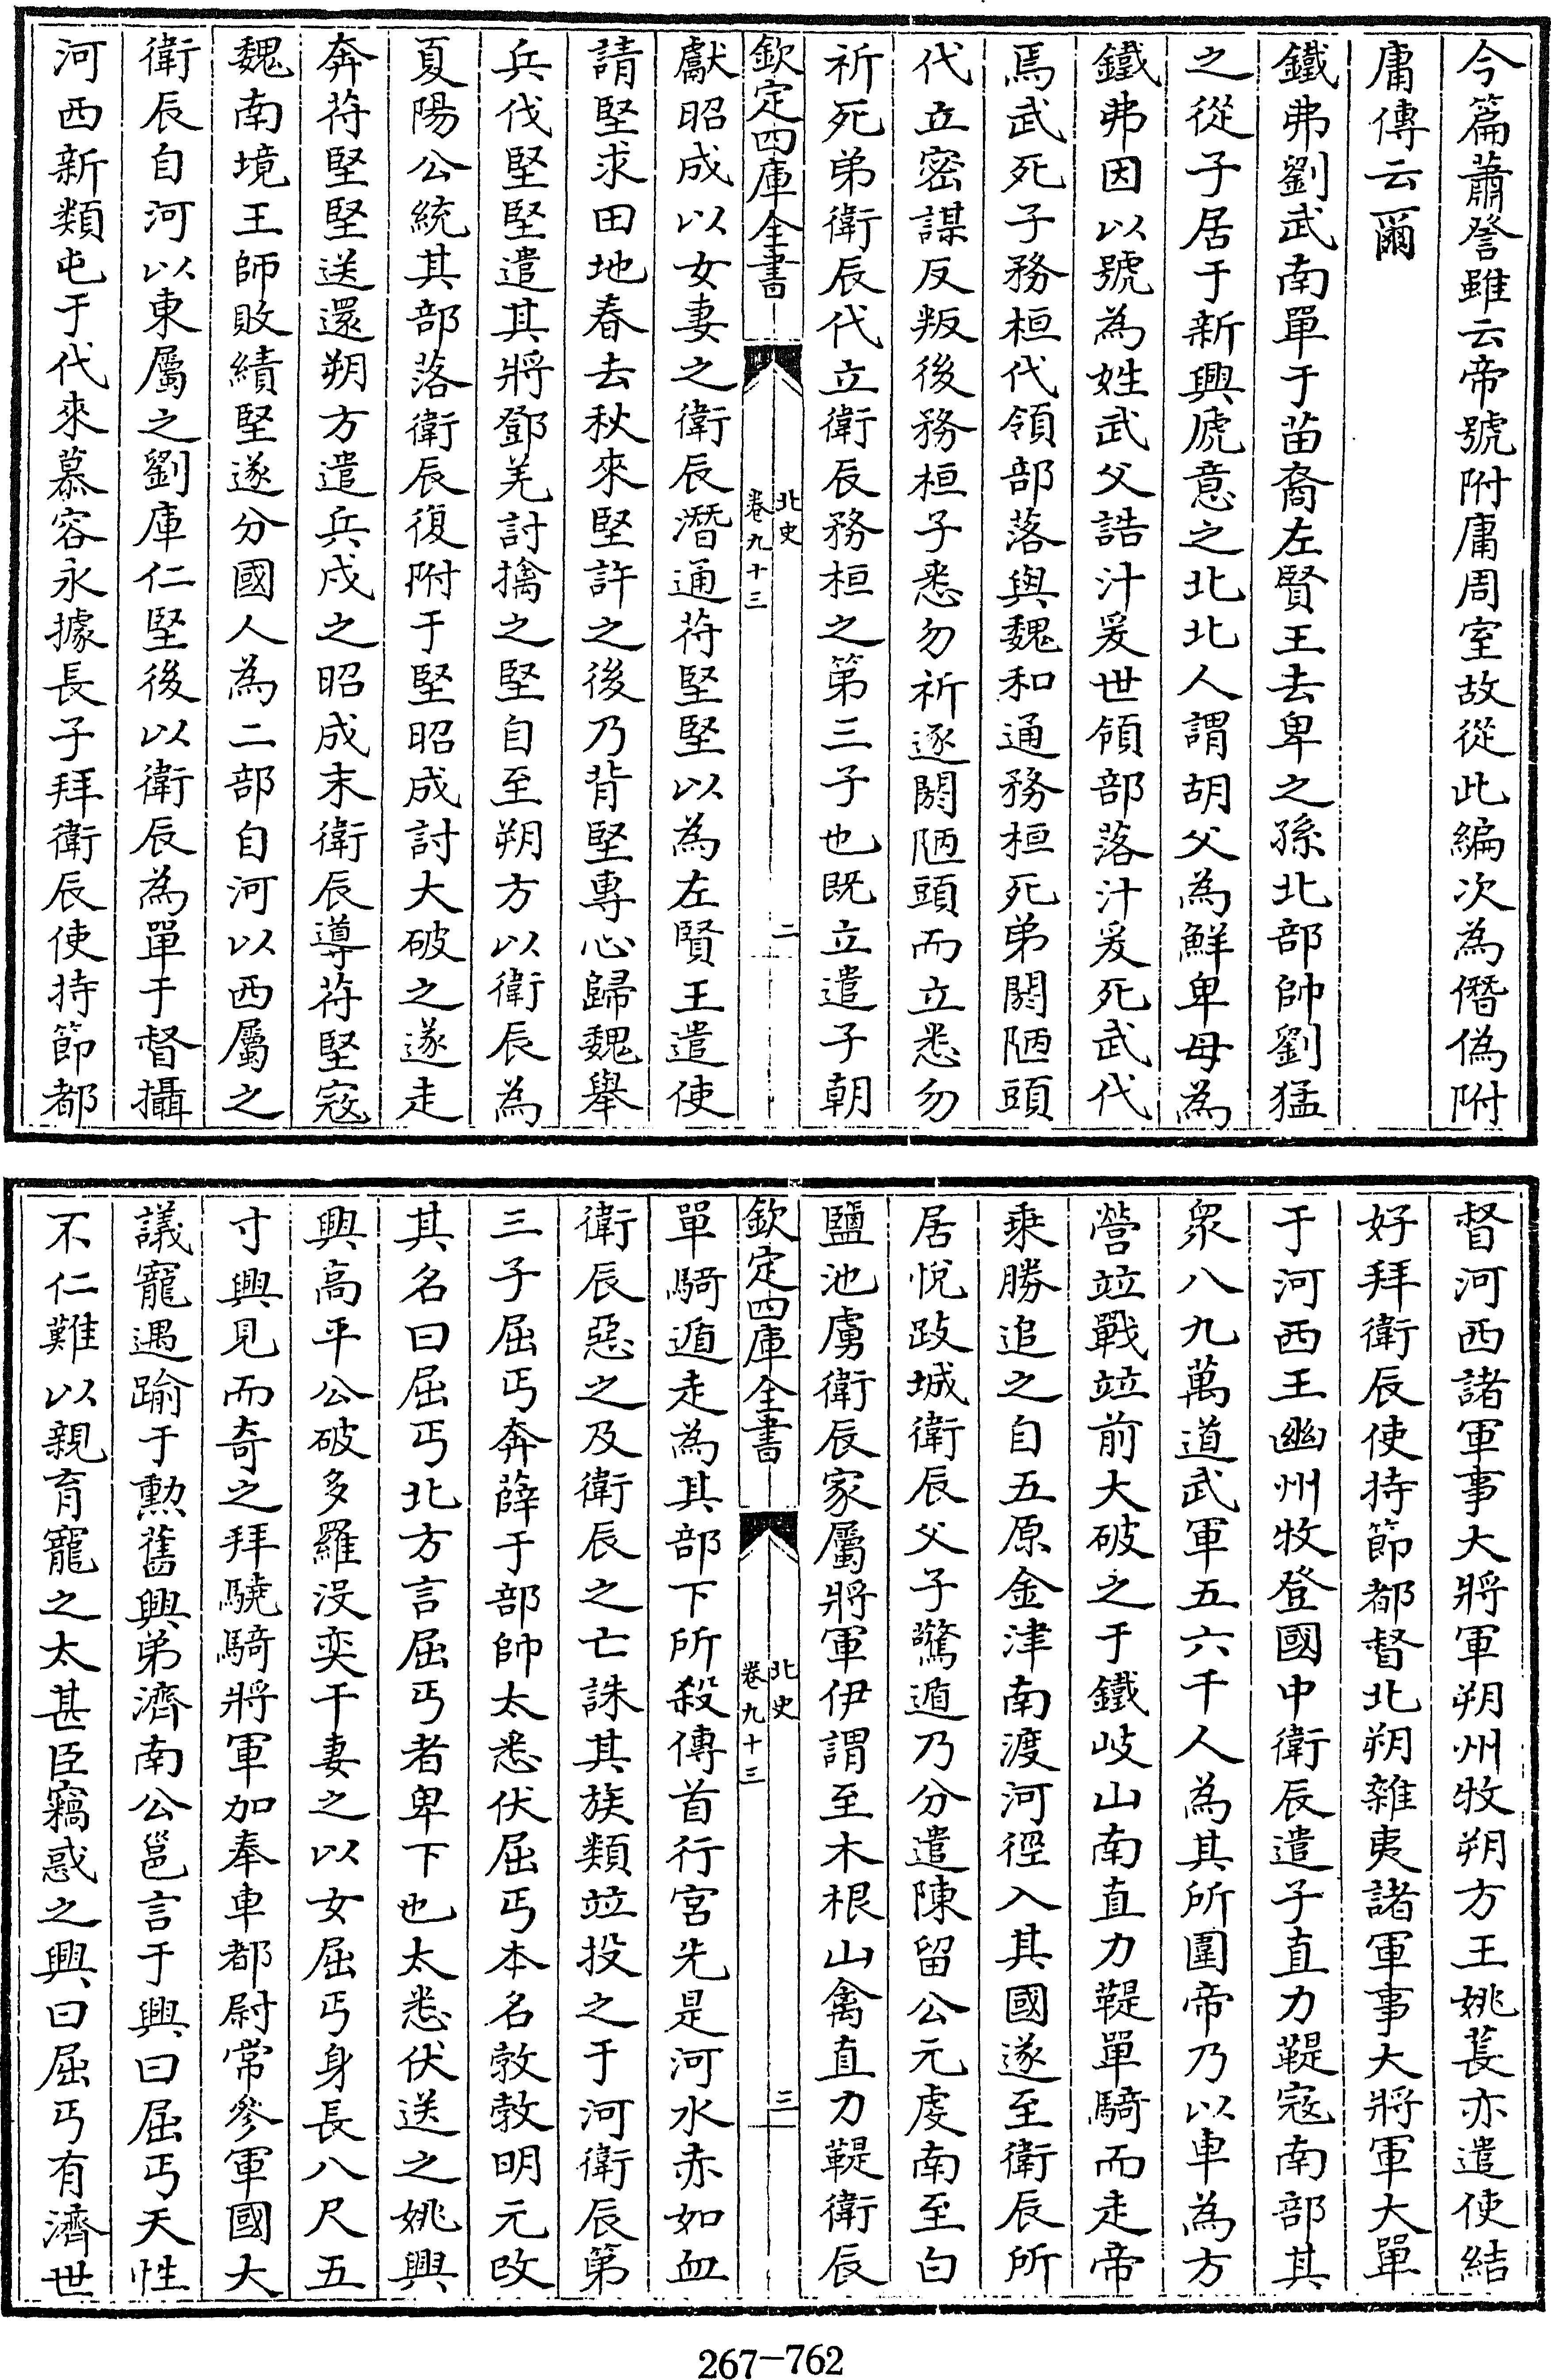 今篇蕭詧雖云帝號附庸周室故從此編次為僭偽附
庸傳云爾
鐵弗劉武南單于苗裔左賢王去卑之孫北部帥劉猛
之從子居于新興虒意之北北人謂胡父為鮮卑母為
鐵弗因以號為姓武父誥汁爰世領部落汁爰死武代
焉武死子務桓代領部落與魏和通務桓死弟閼陋頭
代立密謀反叛後務桓子悉勿祈逐閼陋頭而立悉勿
祈死弟衛辰代立衛辰務桓之第三子也既立遣子朝
欽定四庫全書
北史
卷九十三
二
獻昭成以女妻之衛辰潛通苻堅堅以為左賢王遣使
請堅求田地春去秋來堅許之後乃背堅專心歸魏舉
兵伐堅堅遣其將鄧羌討擒之堅自至朔方以衛辰為
夏陽公統其部落衛辰復附于堅昭成討大破之遂走
奔苻堅堅送還朔方遣兵戍之昭成末衛辰導苻堅寇
魏南境王師敗績堅遂分國人為二部自河以西屬之
衛辰自河以東屬之劉庫仁堅後以衛辰為單于督攝
河西新類屯于代來慕容永據長子拜衛辰使持節都
督河西諸軍事大將軍朔州牧朔方王姚萇亦遣使結
好拜衛辰使持節都督北朔雜夷諸軍事大將軍大單
于河西王幽州牧登國中衛辰遣子直力鞮寇南部其
眾八九萬道武軍五六千人為其所圍帝乃以車為方
營竝戰竝前大破之于鐵岐山南直力鞮單騎而走帝
乘勝追之自五原金津南渡河徑入其國遂至衛辰所
居悅跋城衛辰父子驚遁乃分遣陳留公元虔南至白
鹽池虜衛辰家屬將軍伊謂至木根山禽直力鞮衛辰
欽定四庫全書
北史
卷九十三
三
單騎遁走為其部下所殺傳首行宮先是河水赤如血
衛辰惡之及衛辰之亡誅其族類竝投之于河衛辰第
三子屈丐奔薛于部帥太悉伏屈丐本名敦敦明元改
其名曰屈丐北方言屈丐者卑下也太悉伏送之姚興
興高平公破多羅沒奕干妻之以女屈丐身長八尺五
寸興見而奇之拜驍騎將軍加奉車都尉常參軍國大
議寵遇踰于勲舊興弟濟南公邕言于興曰屈丐天性
不仁難以親育寵之太甚臣竊惑之興曰屈丐有濟世
267-762